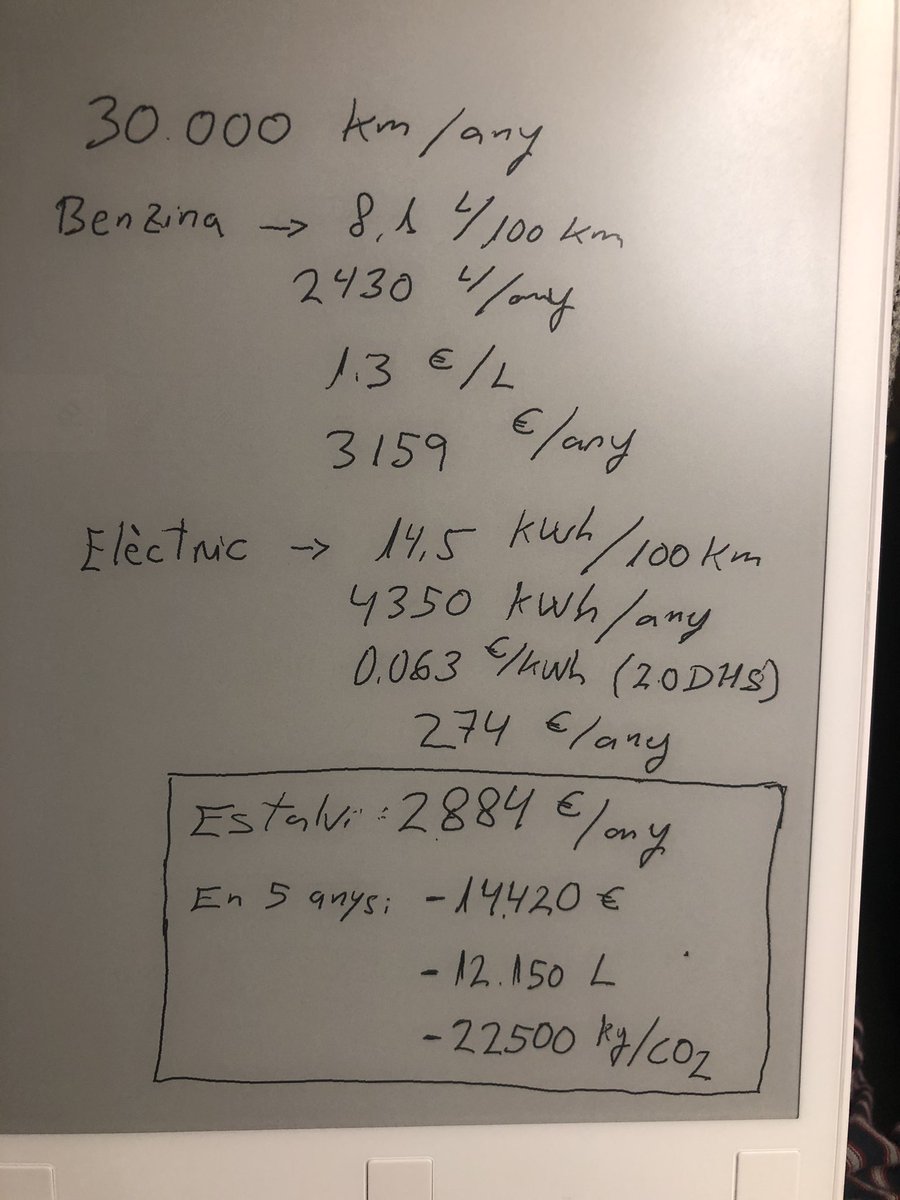 30.000 km/any
Benzina → 8,1 L/100 km
2430 L/any
1.3 €/L
3159 €/any
Elèctric → 14,5 kWh/100 km
4350 kWh/any
0.063 €/kWh (2.0DHS)
274 €/any
Estalvi: 2.884 €/any
En 5 anys: -14.420 €
-12.150 L
-22500 kg/CO2